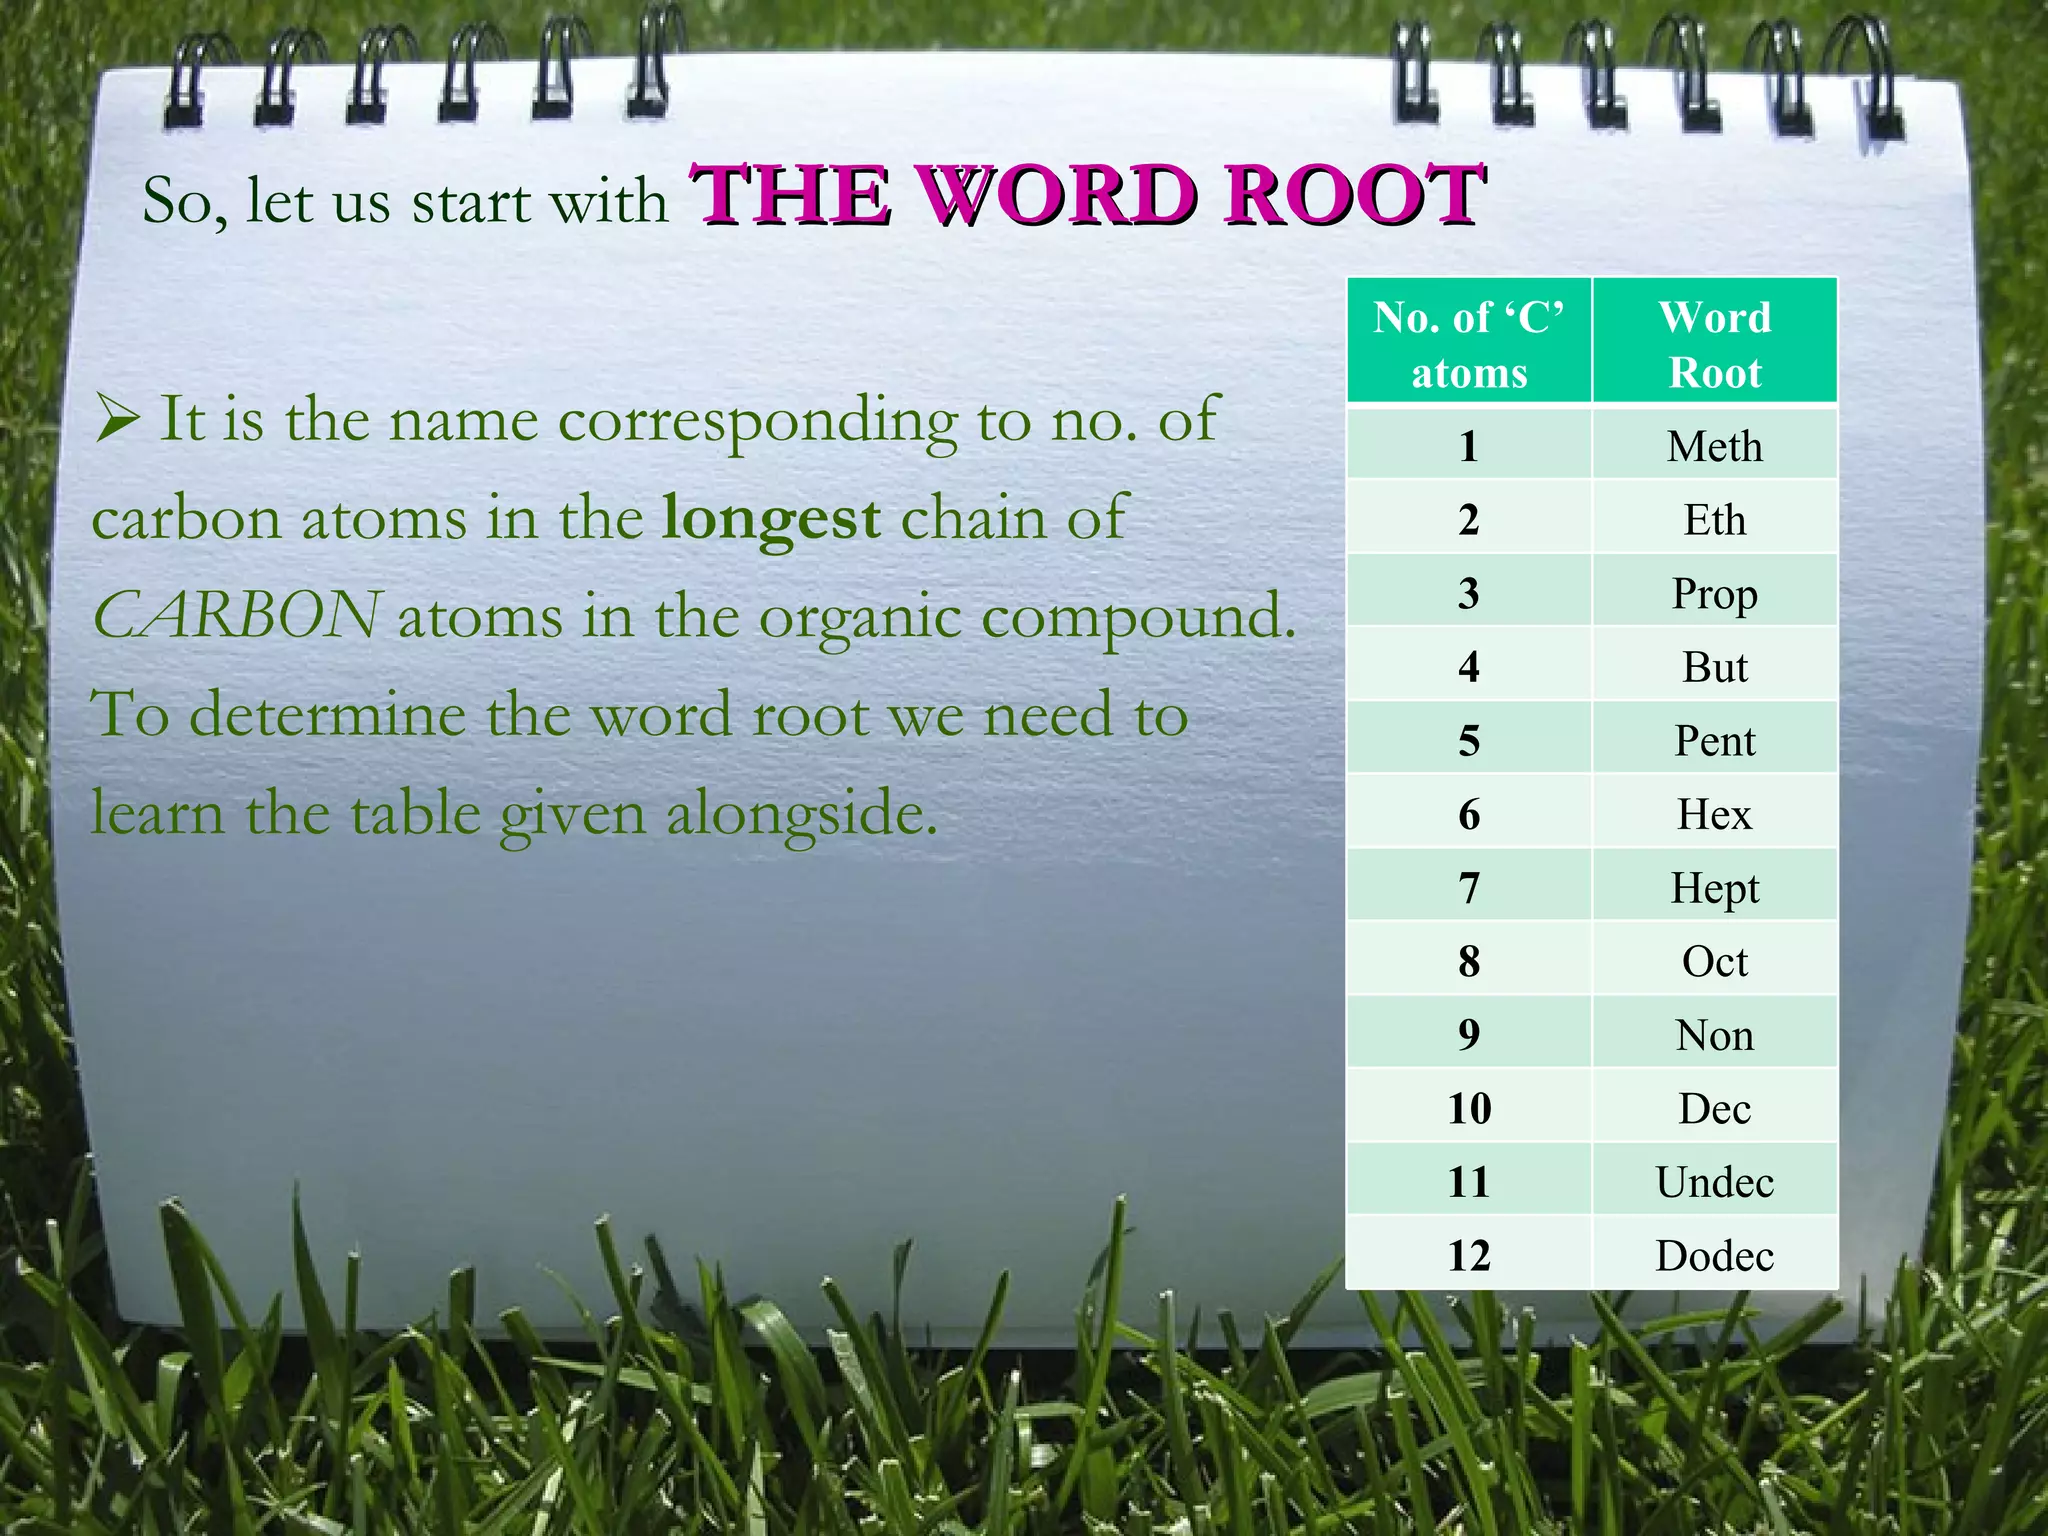 So, let us start with THE WORD ROOT
➢ It is the name corresponding to no. of
carbon atoms in the longest chain of
CARBON atoms in the organic compound.
To determine the word root we need to
learn the table given alongside.
No. of ‘C’ atoms Word Root
1 Meth
2 Eth
3 Prop
4 But
5 Pent
6 Hex
7 Hept
8 Oct
9 Non
10 Dec
11 Undec
12 Dodec